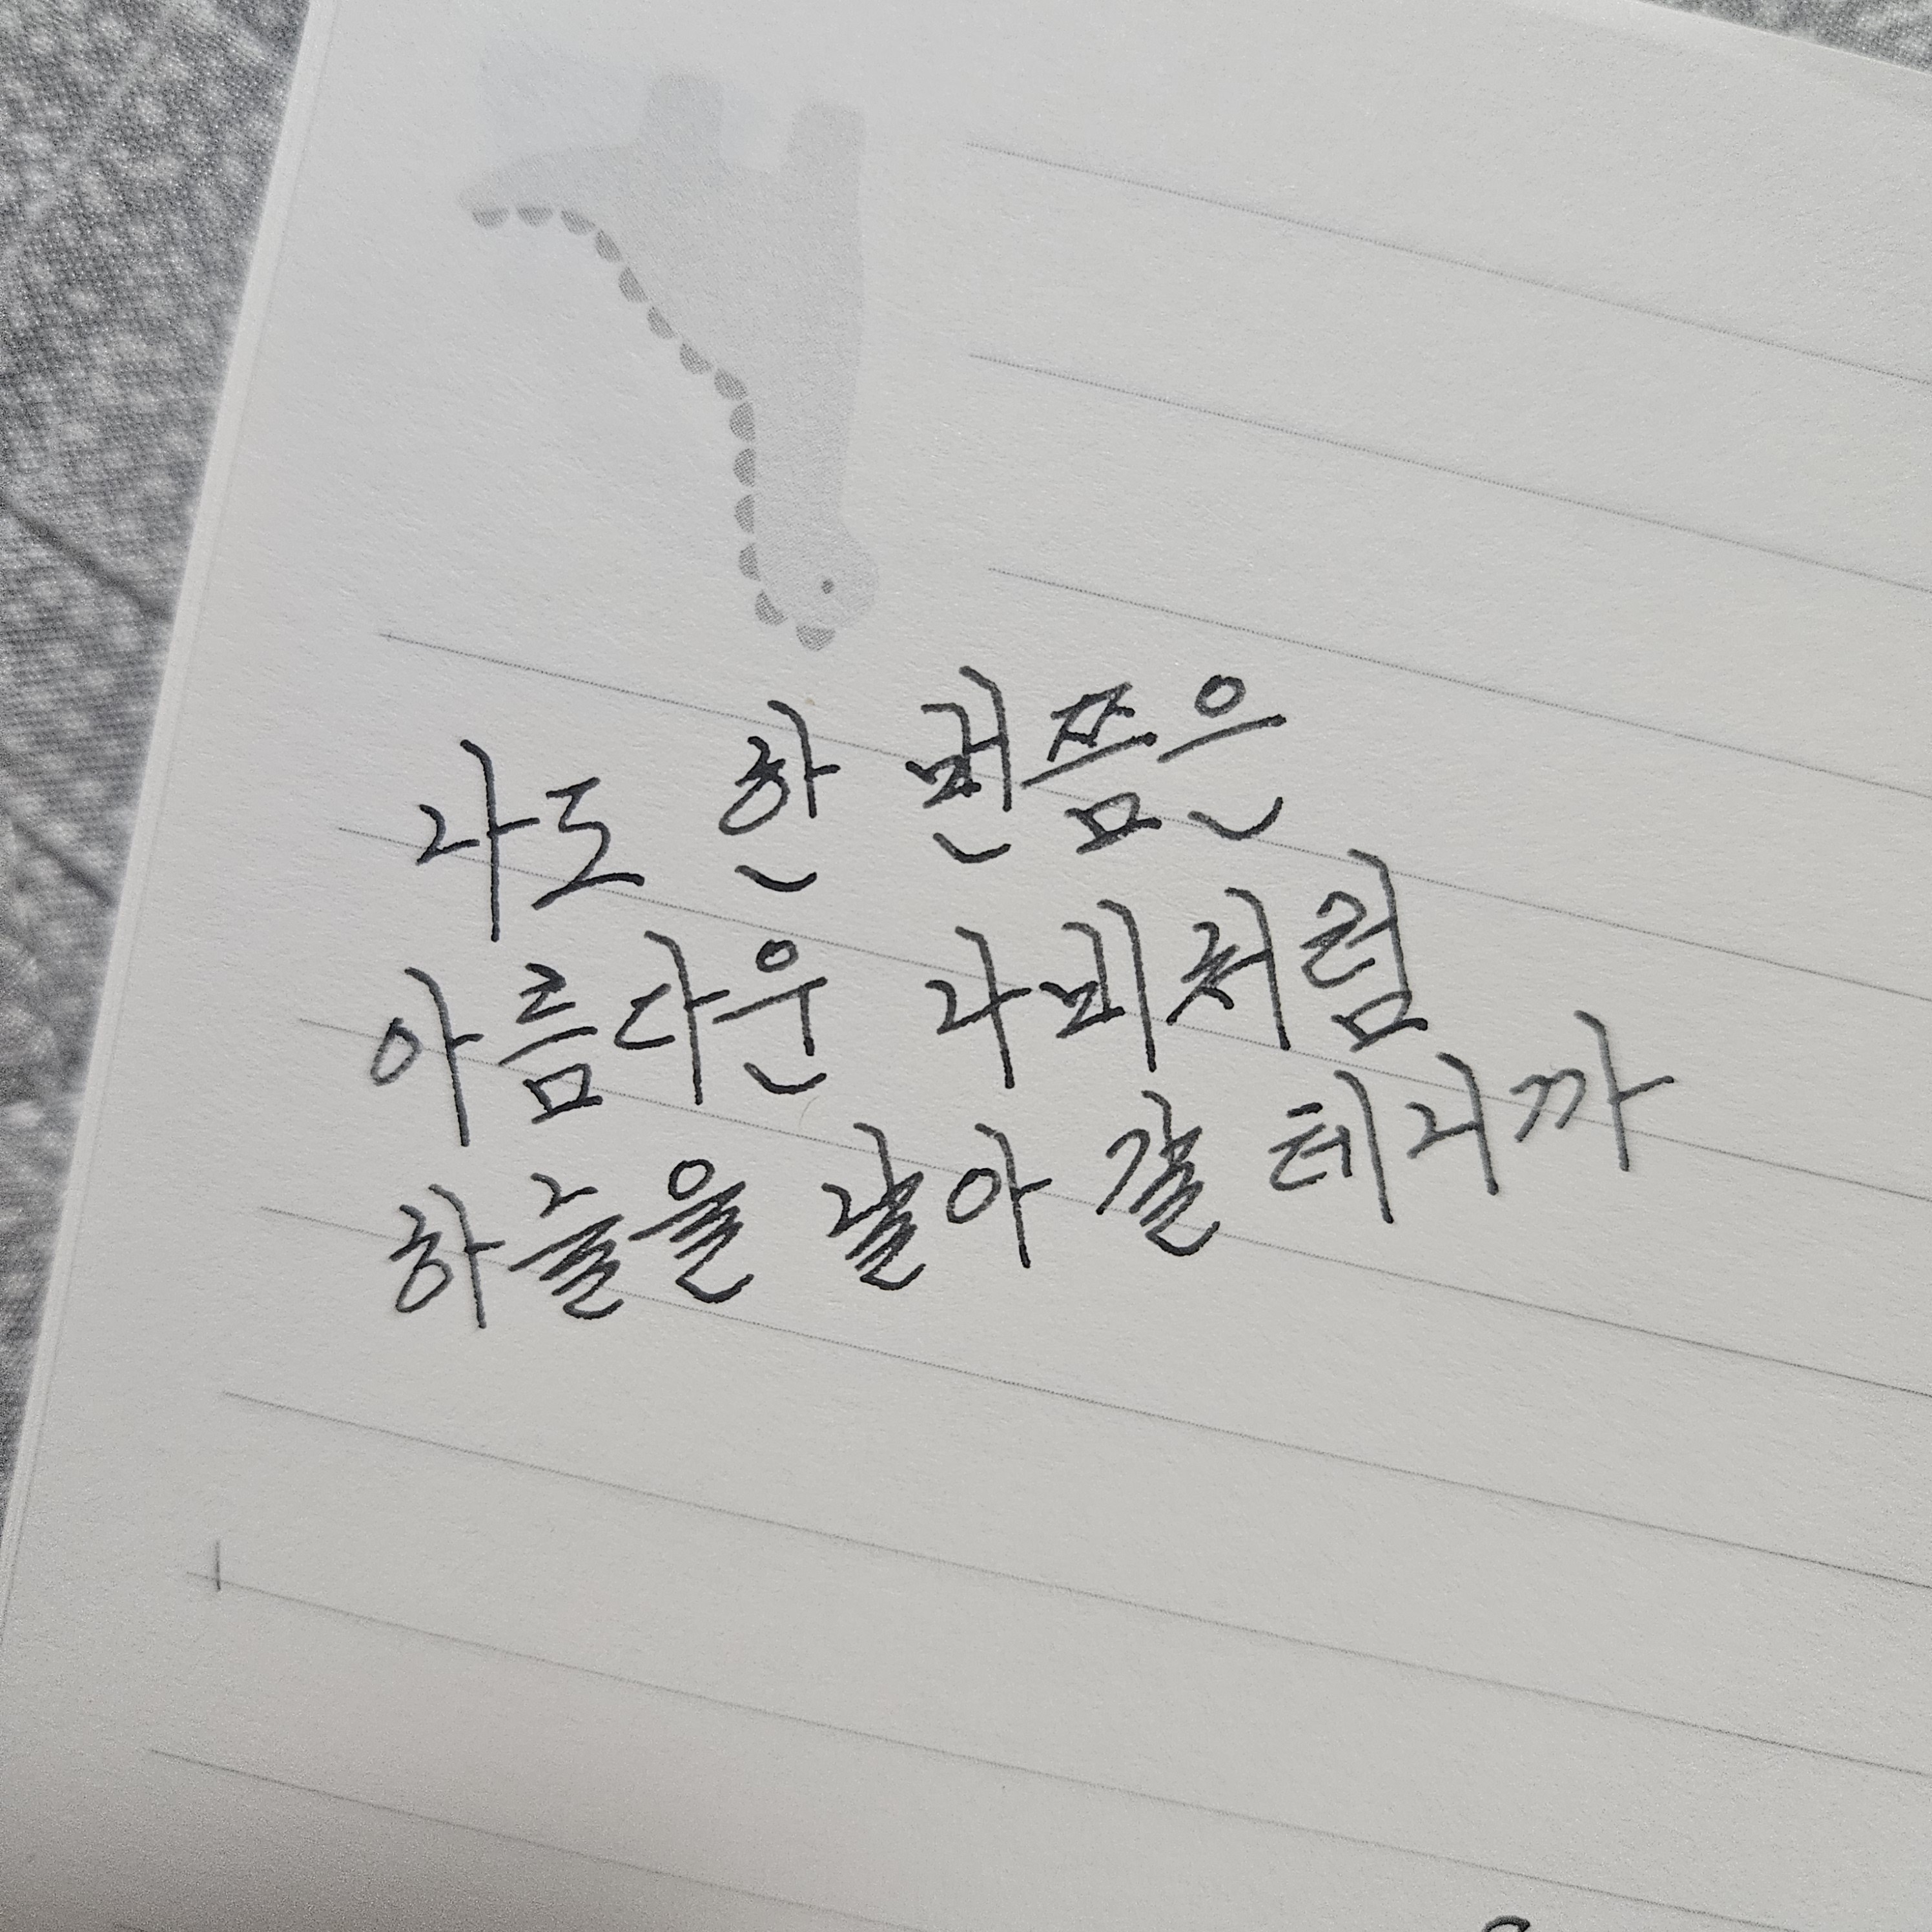 나도 한 번쯤은
아름다운 나비처럼
하늘을 날아 갈 테니까